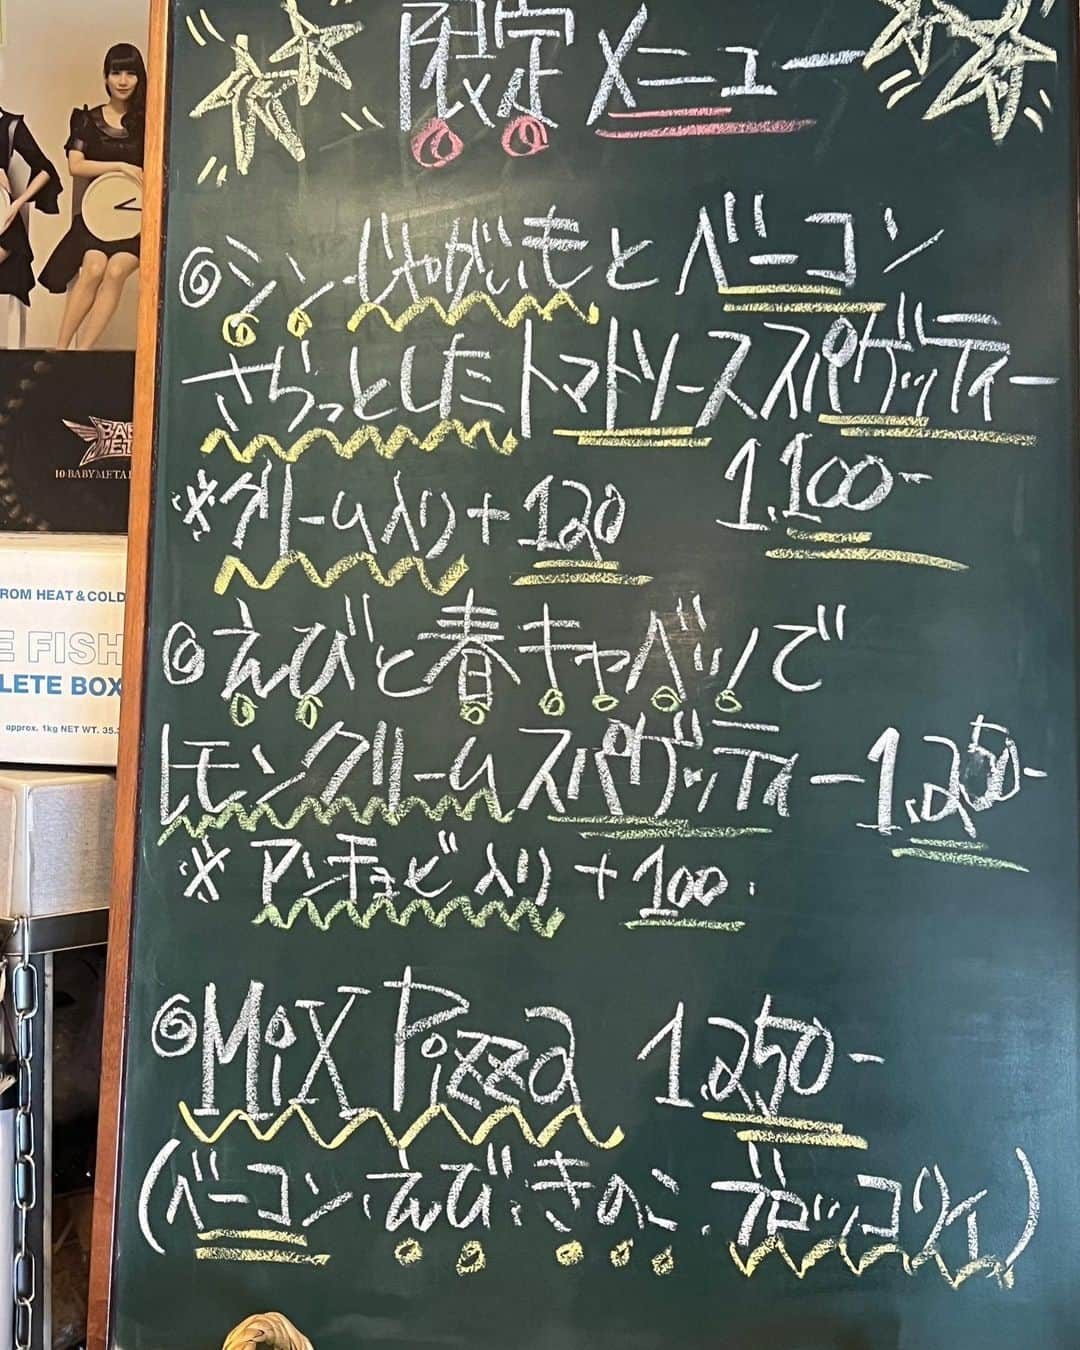 限定メニュー
◎シン・じゃがいもとベーコン
さらっとしたトマトソーススパゲッティー
1,100-
※クリーム入り+120
◎えびと春キャベツで
レモンクリームスパゲッティー1,250-
※アンチョビ入り+100.
◎MiX Pizza 1,250-
(ベーコン、えび、きのこ、ブロッコリィ)
BABYMETAL
10 BABYMETA
ROM HEAT & COLD
E FISH
LETE BOX
approx. 1kg NET WT. 35.